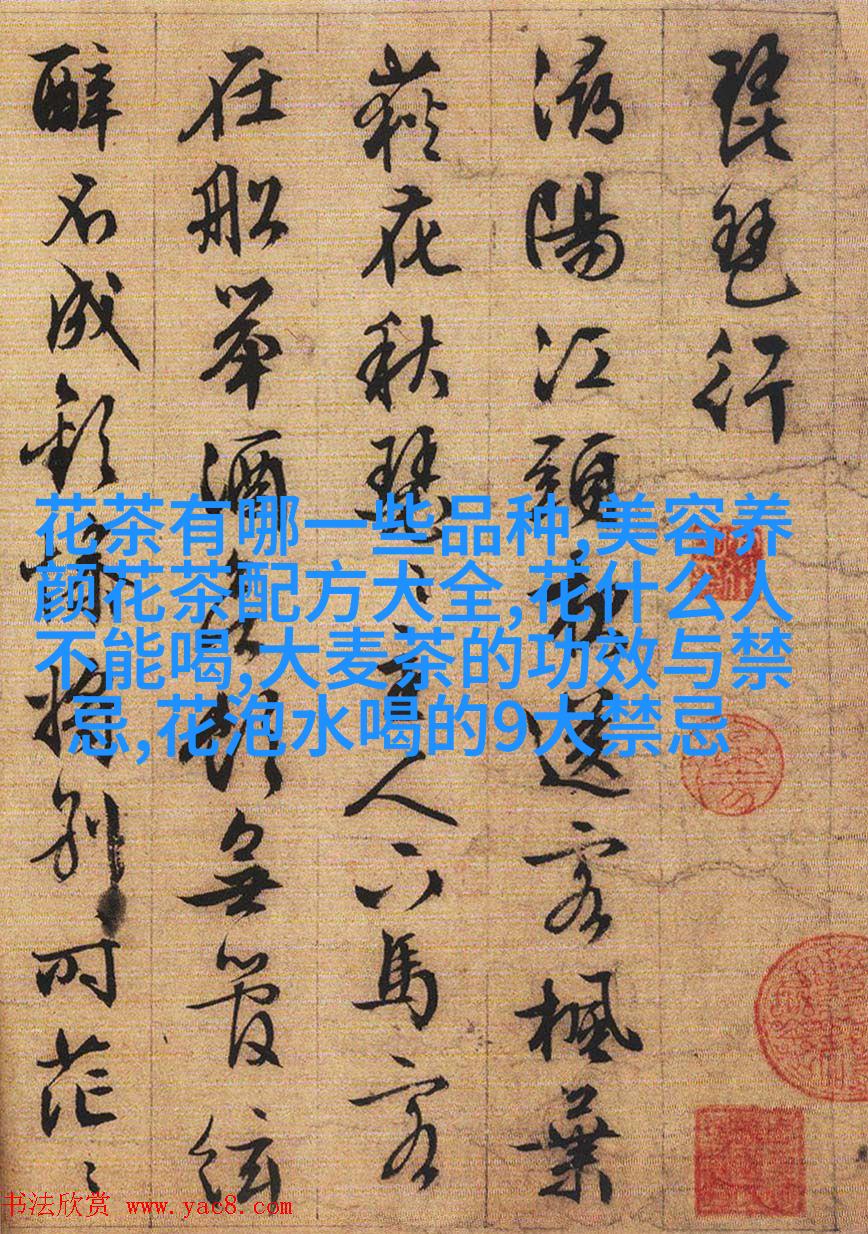 琵琶行
潯陽江頭夜送客楓葉
荻花秋瑟〻主人下馬客
在船舉酒欲飲無管絃
醉不成歡慘將別〻时茫〻
花茶有哪一些品种,美容养
颜花茶配方大全,花什么人
不能喝,大麦茶的功效与禁
忌,花泡水喝的9大禁忌
书法欣赏 www.yac8.com